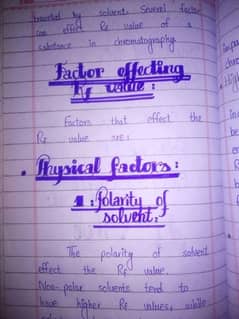 traveled by solvent. Several factor
can effect Rf value of a
substance in chromatography
Factor effecting
Rf value :
Factors that effect the
Rf value are:
• Physical factors :
1 : Polarity of
solvent:
The polarity of solvent
effect the Rf value.
Non-polar solvents tend to
have higher Rf values, while